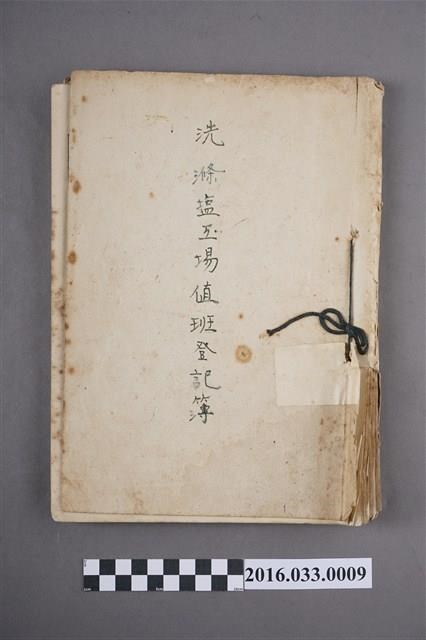 洗滌塩工場值班登記簿
2016.033.0009